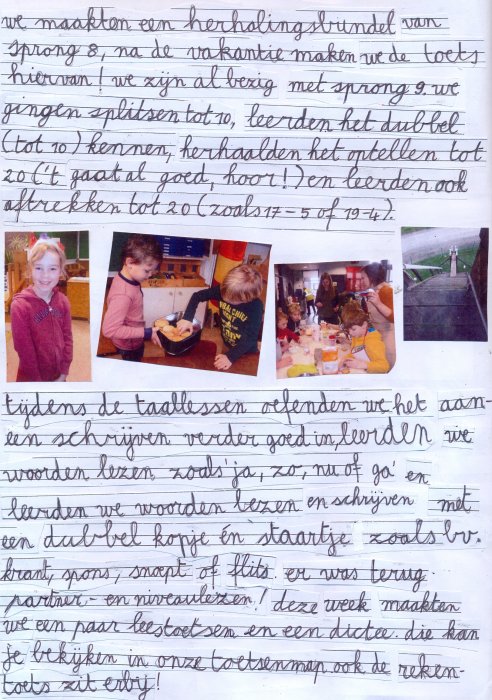 we maakten een herhalingsbundel van
sprong 8, na de vakantie maken we de toets
hiervan! we zijn al bezig met sprong 9. we
gingen splitsen tot 10, leerden het dubbel
(tot 10) kennen, herhaalden het optellen tot
20 ('t gaat al goed, hoor!) en leerden ook
aftrekken tot 20 (zoals 17 - 5 of 19-4).
tijdens de taallessen oefenden we het aan-
een schrijven verder goed in, leerden we
woorden lezen zoals 'ja, zo, nu of ga' en
leerden we woorden lezen en schrijven met
een dubbel kopje én staartje zoals bv.
krant, spons, snoept of flits. er was terug
partner- en niveaulezen! deze week maakten
we een paar leestoetsen en een dictee. die kan
je bekijken in onze toetsenmap ook de reken-
toets zit erbij!